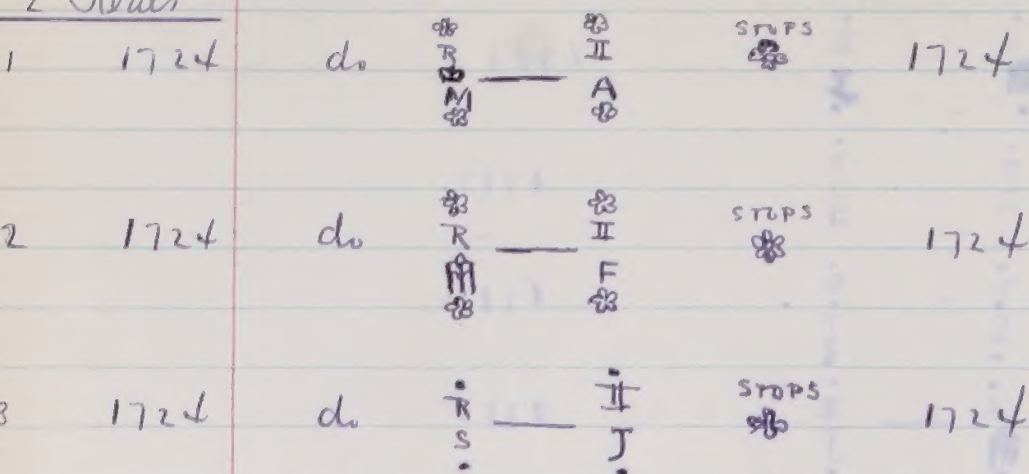 2 Reales
1 1724 do R M II A STOPS 1724
2 1724 do R II F STOPS 1724
3 1724 do R S II J STOPS 1724